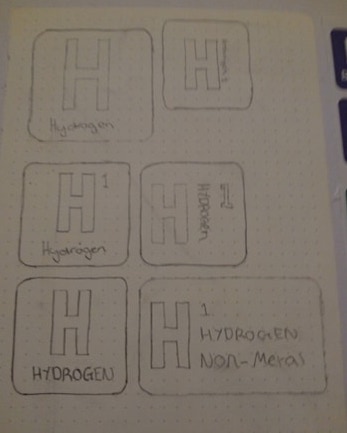 H
Hydrogen
H
H
1
Hydrogen
H
HYDROGEN
1
H
HYDROGEN
H
1
HYDROGEN
NON-Metal